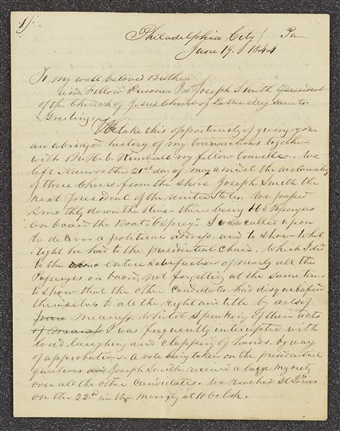 1/.
Philadelphia City / Pa
June 19. 1844
To my well beloved Brother
and Fellow Prisoner Joseph Smith President
of the Church of Jesus Christ of Latter day Saints.
Greeting
take this opportunity of giving you
an abridged history of my transactions together
with Br H. C. Kimball my fellow traveller. We
left Nauvoo the 21st day of may amidst the acclamations
of three Cheers from the Shore Joseph Smith the
next President of the United States. We passed
smoothly down the River there being
on board the Boat Osprey. I was called upon
to deliver a political address and to show what
right he had to the presidential Chair, which I did
to the entire satisfaction of nearly all the
Passengers on board, not forgetting at the same time
to show that the other Candidates had disqualified
themselves to all the right and title by acts of
meanness. Whilst speaking of their acts
of I was frequently intercepted with
loud laughing and clapping of hands, by way
of approbation. A vote being taken on the presidential
question Joseph Smith received a large majority
over all the other Candidates. We reached St Louis
on the 22nd in the morning at 10 oclock.